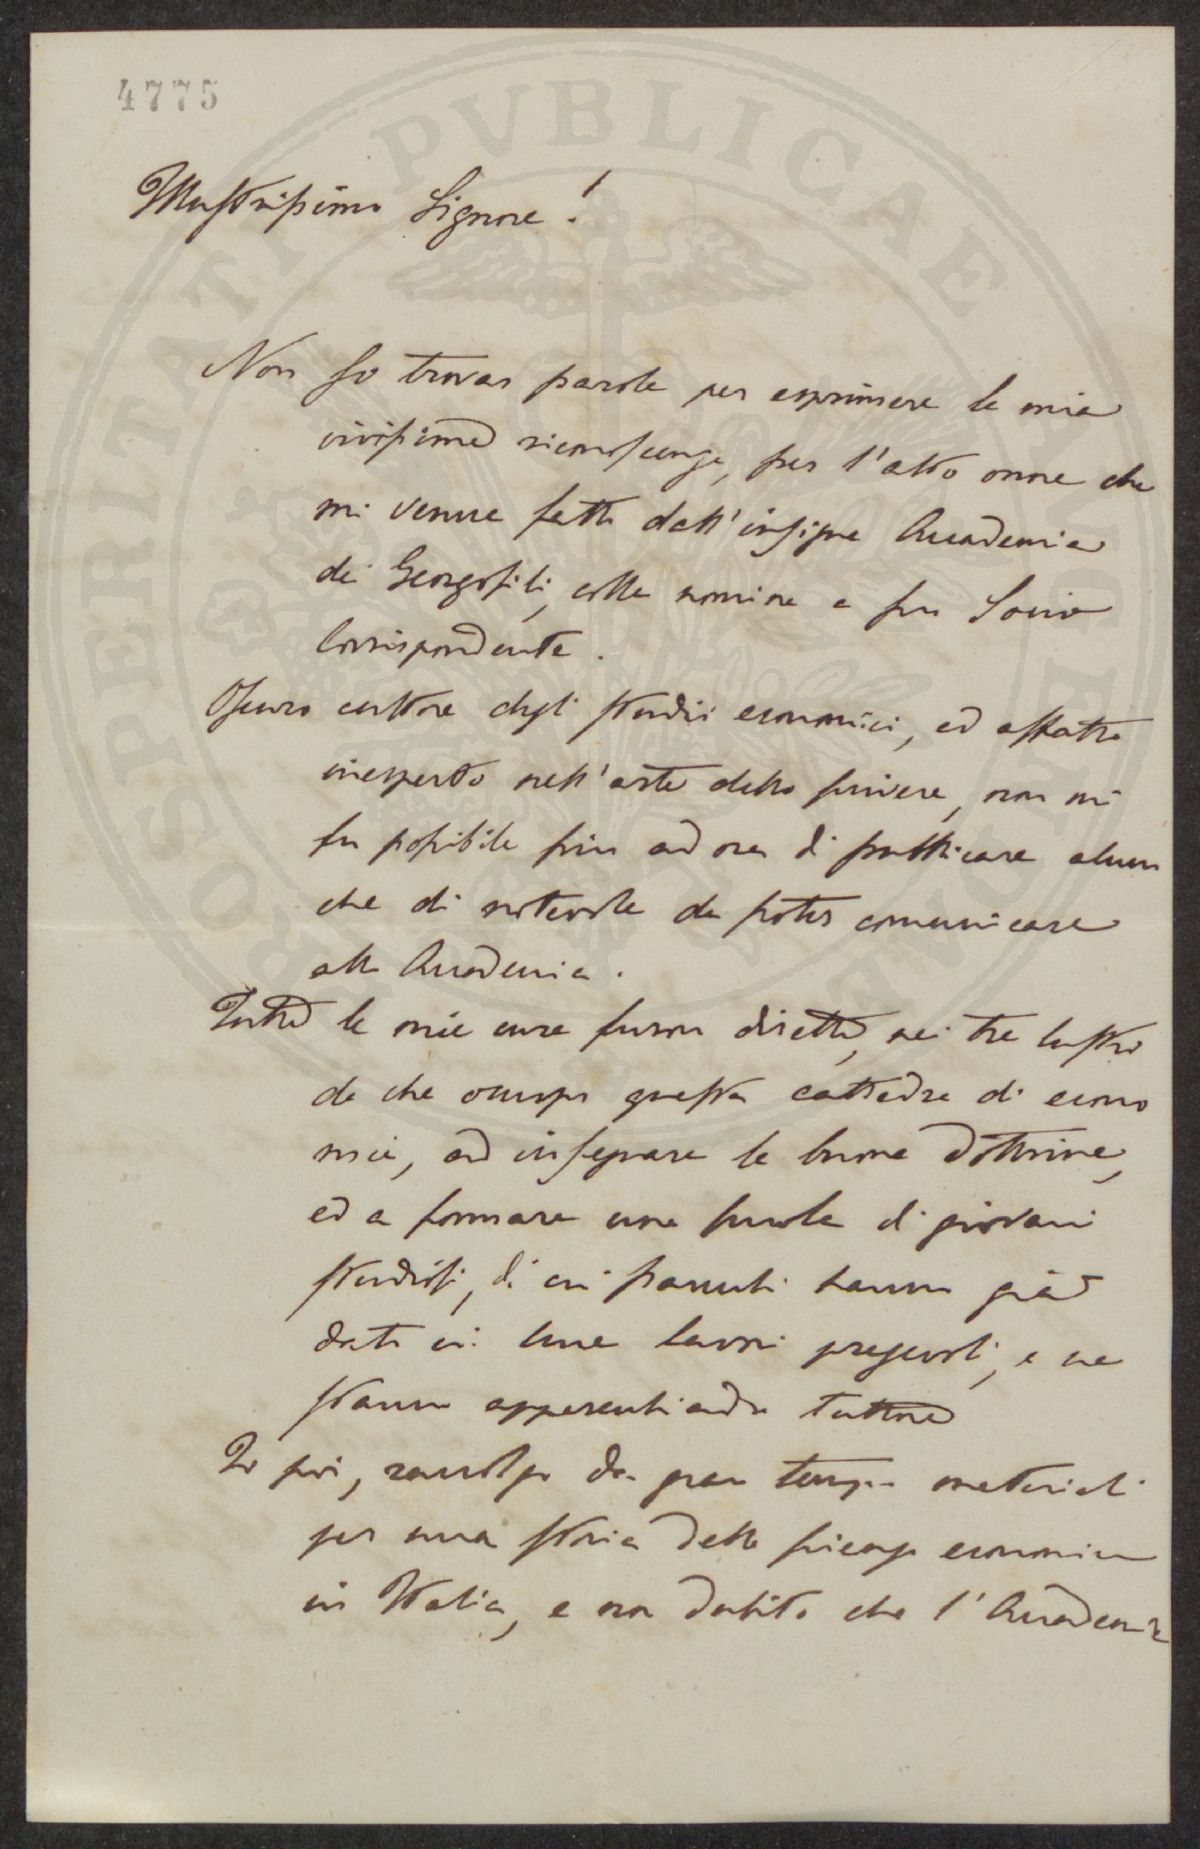 4775
Illustrissimo Signore!
Non so trovar parole per esprimere la mia
vivissima riconoscenza, per l'alto onore che
mi venne fatto dall'insigne Accademia
dei Georgofili, colla nomina a suo Socio
Corrispondente.
Oscuro cultore degli studii economici, ed affatto
inesperto nell'arte dello scrivere, non mi
fu possibile fin ad ora di pubblicare alcun
che di notevole da poter comunicare
alla Accademia.
Tutte le mie cure furon dirette, nei tre lustri
da che occupo questa cattedra di econo
mia, ad insegnare le buone dottrine,
ed a formare una scuola di giovani
studiosi, di cui parecchi hanno già
dato in luce lavori pregevoli, e ne
stanno apparecchiando tuttora
Io poi, raccolgo da gran tempo materiali
per una storia della scienza economica
in Italia, e non dubito che l'Accademia
PROSPERITATI PVBLICAE